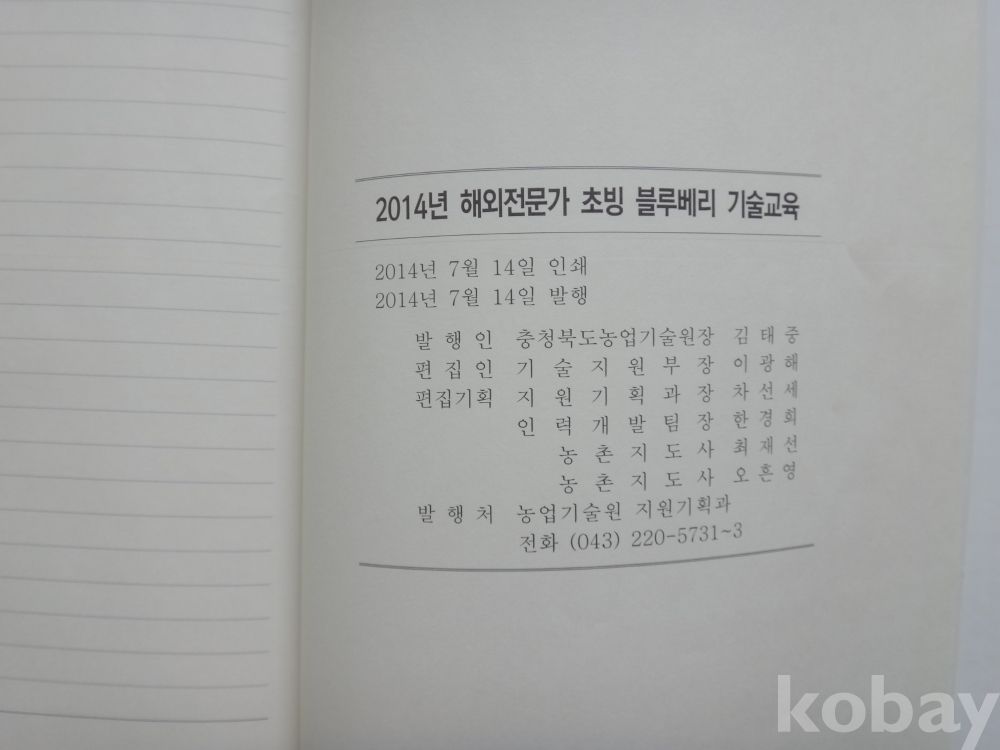 2014년 해외전문가 초빙 블루베리 기술교육
2014년 7월 14일 인쇄
2014년 7월 14일 발행
발 행 인 충청북도농업기술원장 김 태 중
편 집 인 기 술 지 원 부 장 이 광 해
편집기획 지 원 기 획 과 장 차 선 세
인 력 개 발 팀 장 한 경 희
농 촌 지 도 사 최 재 선
농 촌 지 도 사 오 흔 영
발 행 처 농업기술원 지원기획과
전화 (043) 220-5731~3
kobay